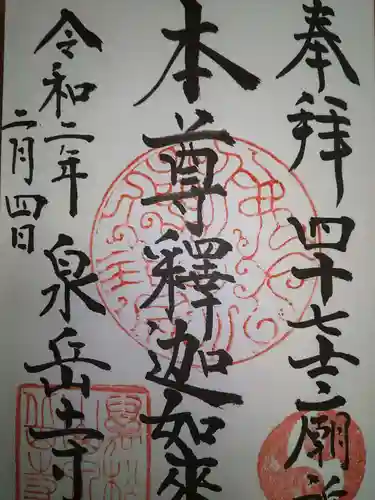 奉拝 四十七士廟所
本尊釋迦如来
令和二年
二月四日
泉岳寺